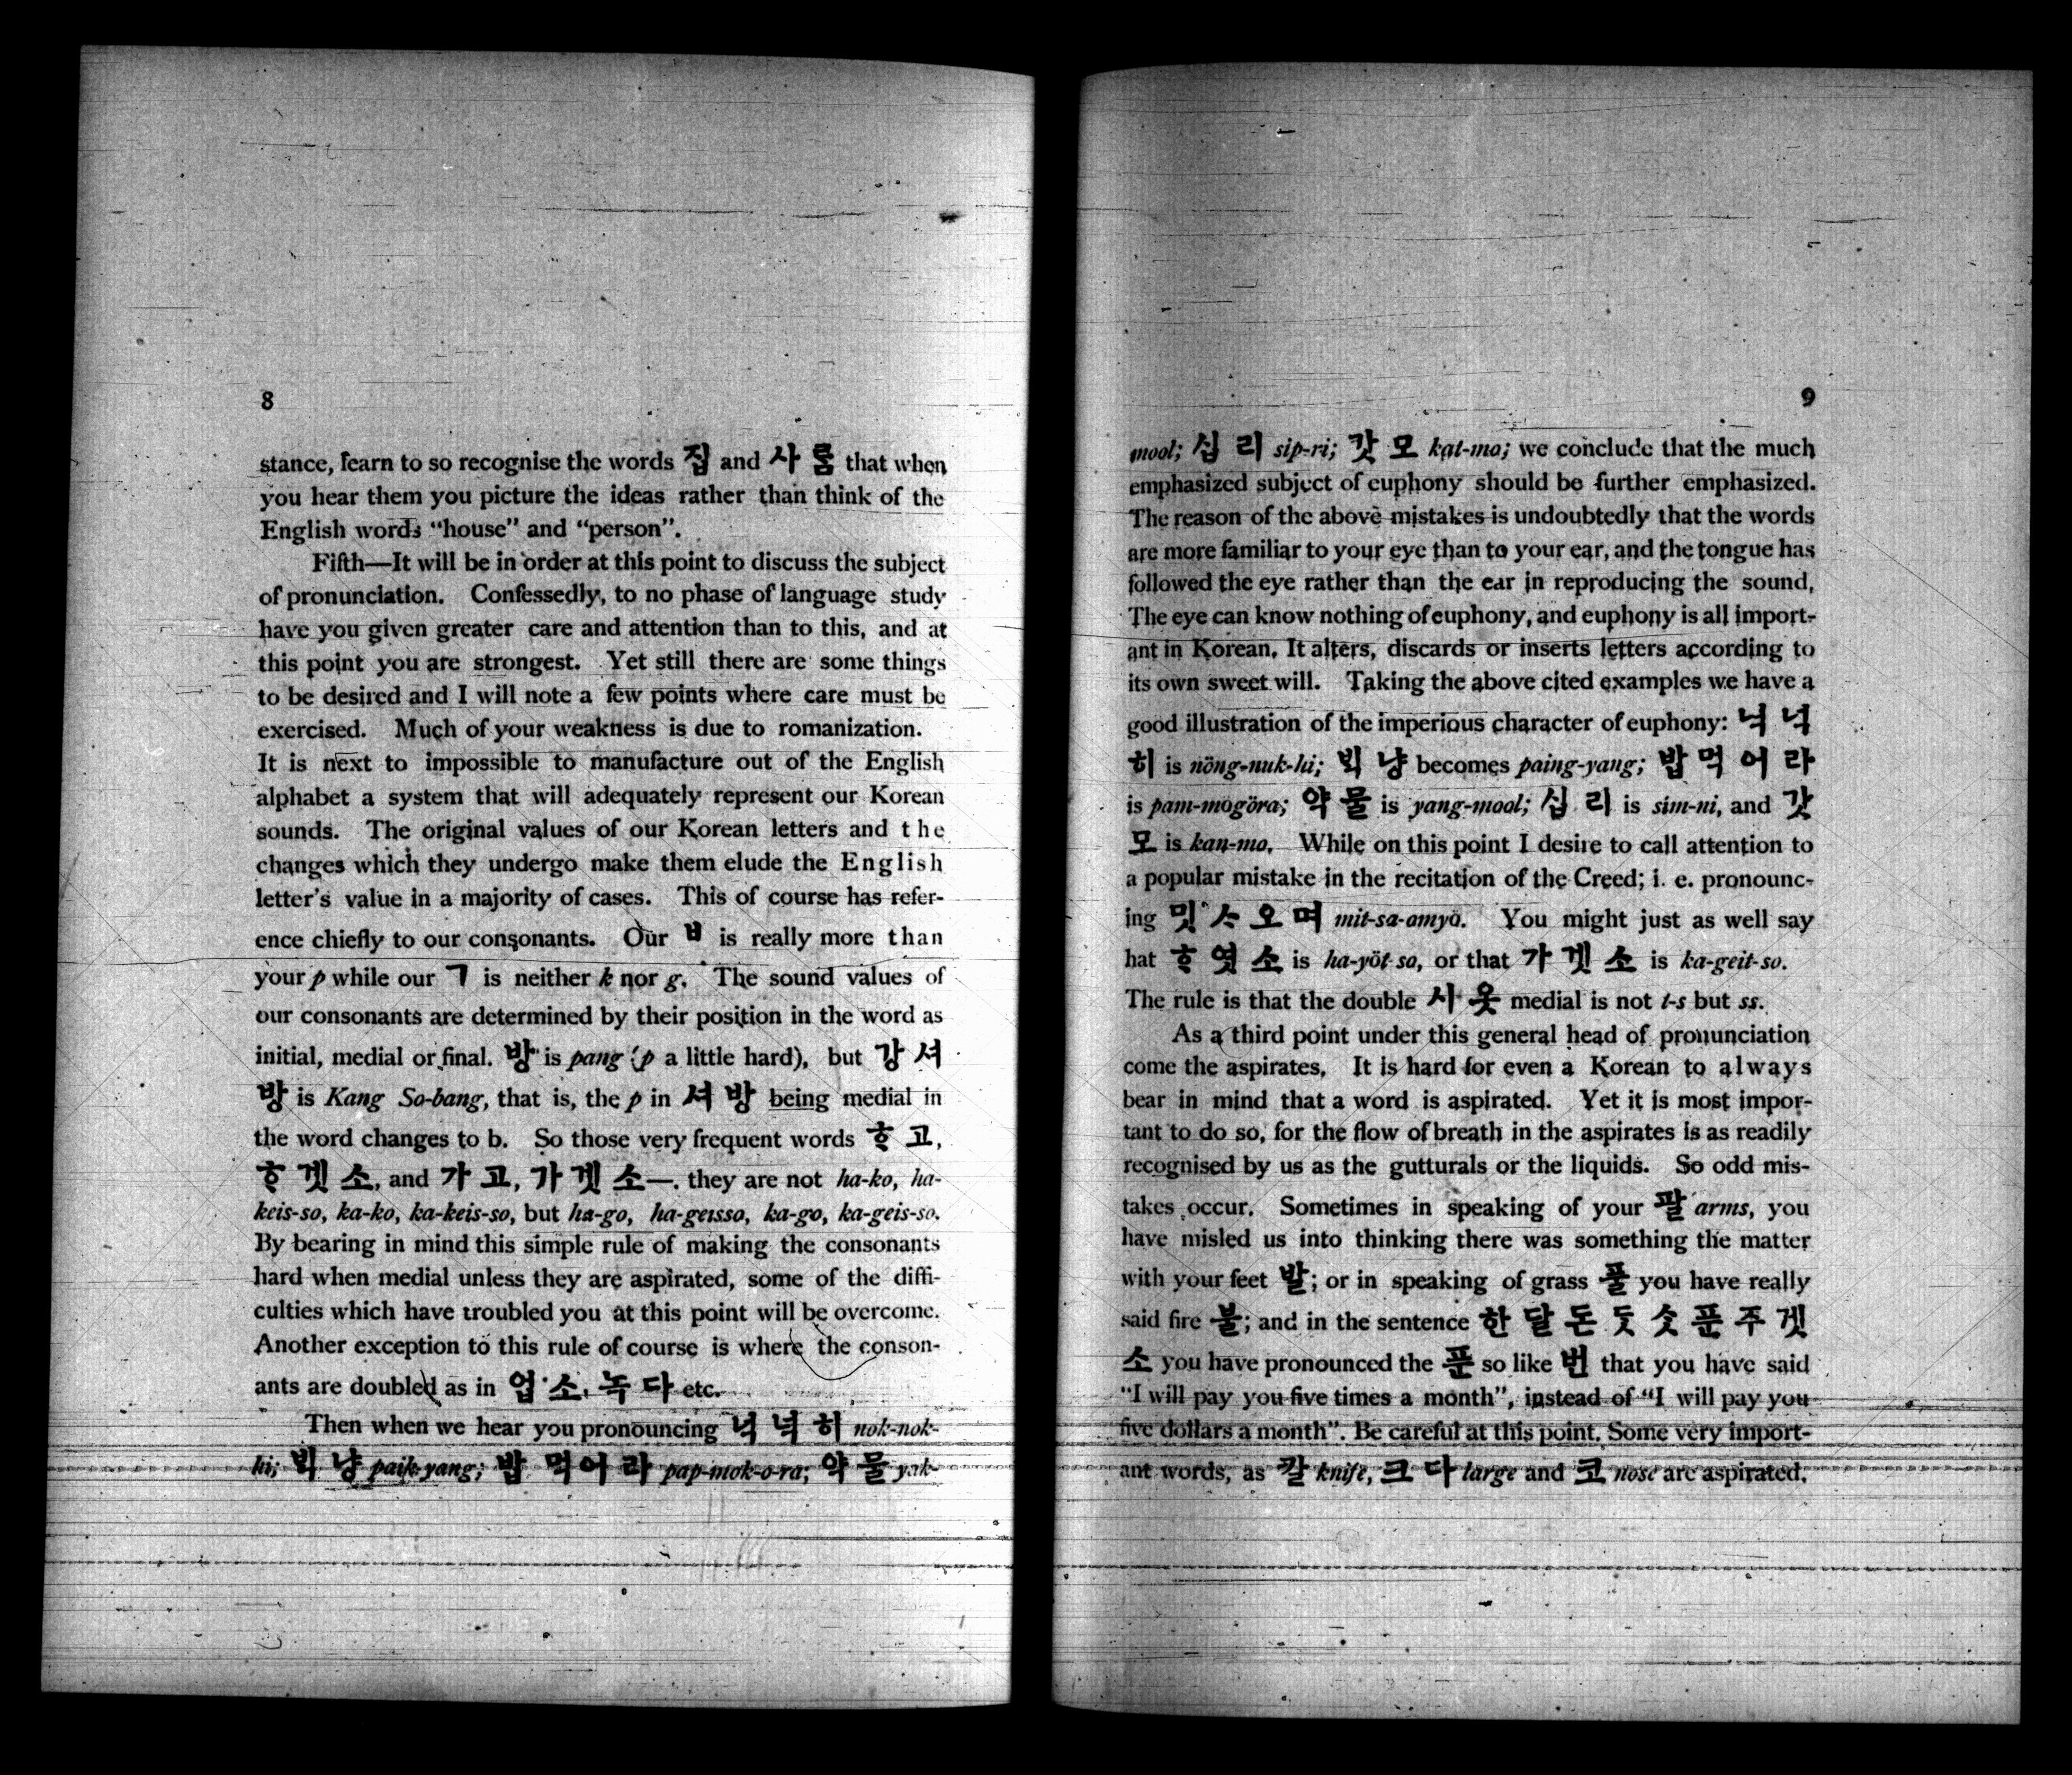 8
stance, learn to so recognise the words 집 and 사 ᄅᆞᆷ that when
you hear them you picture the ideas rather than think of the
English words "house" and "person".
Fifth—It will be in order at this point to discuss the subject
of pronunciation. Confessedly, to no phase of language study
have you given greater care and attention than to this, and at
this point you are strongest. Yet still there are some things
to be desired and I will note a few points where care must be
exercised. Much of your weakness is due to romanization.
It is next to impossible to manufacture out of the English
alphabet a system that will adequately represent our Korean
sounds. The original values of our Korean letters and the
changes which they undergo make them elude the English
letter's value in a majority of cases. This of course has refer-
ence chiefly to our consonants. Our ㅂ is really more than
your p while our ㄱ is neither k nor g. The sound values of
our consonants are determined by their position in the word as
initial, medial or final. 방 is pang (p a little hard), but 강 셔
방 is Kang So-bang, that is, the p in 셔 방 being medial in
the word changes to b. So those very frequent words ᄒᆞ 고,
ᄒᆞ 겟 소, and 가 고, 가 겟 소—. they are not ha-ko, ha-
keis-so, ka-ko, ka-keis-so, but ha-go, ha-geisso, ka-go, ka-geis-so.
By bearing in mind this simple rule of making the consonants
hard when medial unless they are aspirated, some of the diffi-
culties which have troubled you at this point will be overcome.
Another exception to this rule of course is where the conson-
ants are doubled as in 업 소, 녹 다 etc.
Then when we hear you pronouncing 넉 넉 히 nok-nok-
hi; ᄇᆡᆨ 냥 paik-yang; 밥 먹 어 라 pap-mok-o-ra; 약 물 yak-
9
mool; 십 리 sip-ri; 갓 모 kat-mo; we conclude that the much
emphasized subject of euphony should be further emphasized.
The reason of the above mistakes is undoubtedly that the words
are more familiar to your eye than to your ear, and the tongue has
followed the eye rather than the ear in reproducing the sound,
The eye can know nothing of euphony, and euphony is all import-
ant in Korean. It alters, discards or inserts letters according to
its own sweet will. Taking the above cited examples we have a
good illustration of the imperious character of euphony: 넉 넉
히 is nöng-nuk-hi; ᄇᆡᆨ 냥 becomes paing-yang; 밥 먹 어 라
is pam-mogöra; 약 물 is yang-mool; 십 리 is sim-ni, and 갓
모 is kan-mo. While on this point I desire to call attention to
a popular mistake in the recitation of the Creed; i. e. pronounc-
ing 밋 ᄉᆞ 오 며 mit-sa-amyö. You might just as well say
hat ᄒᆞ 엿 소 is ha-yöt-so, or that 가 겟 소 is ka-geit-so.
The rule is that the double 시 옷 medial is not t-s but ss.
As a third point under this general head of pronunciation
come the aspirates, It is hard for even a Korean to always
bear in mind that a word is aspirated. Yet it is most impor-
tant to do so, for the flow of breath in the aspirates is as readily
recognised by us as the gutturals or the liquids. So odd mis-
takes occur. Sometimes in speaking of your 팔 arms, you
have misled us into thinking there was something the matter
with your feet 발; or in speaking of grass 풀 you have really
said fire 불; and in the sentence 한 달 돈 닷 ᄉᆞᆺ 푼 주 겟
소 you have pronounced the 푼 so like 번 that you have said
"I will pay you five times a month", instead of "I will pay you
five dollars a month". Be careful at this point. Some very import-
ant words, as 칼 knife, 크 다 large and 코 nose are aspirated.